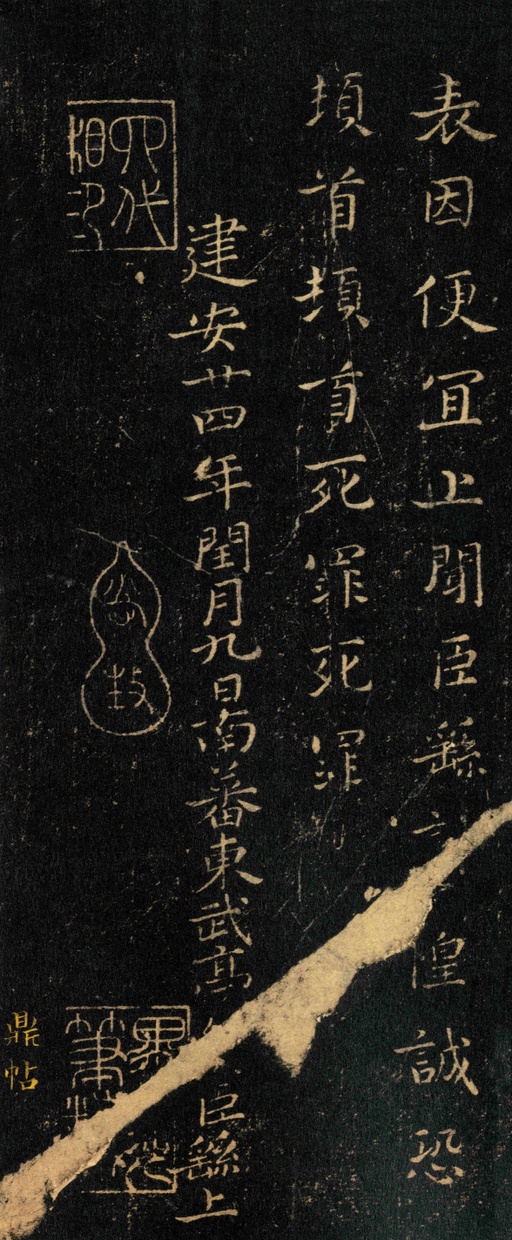 表因便宜上聞臣繇 惶誠恐
頓首頓首死罪死罪
建安廿四年閏月九日南蕃東武髙 臣繇上
四代相印
鼎帖